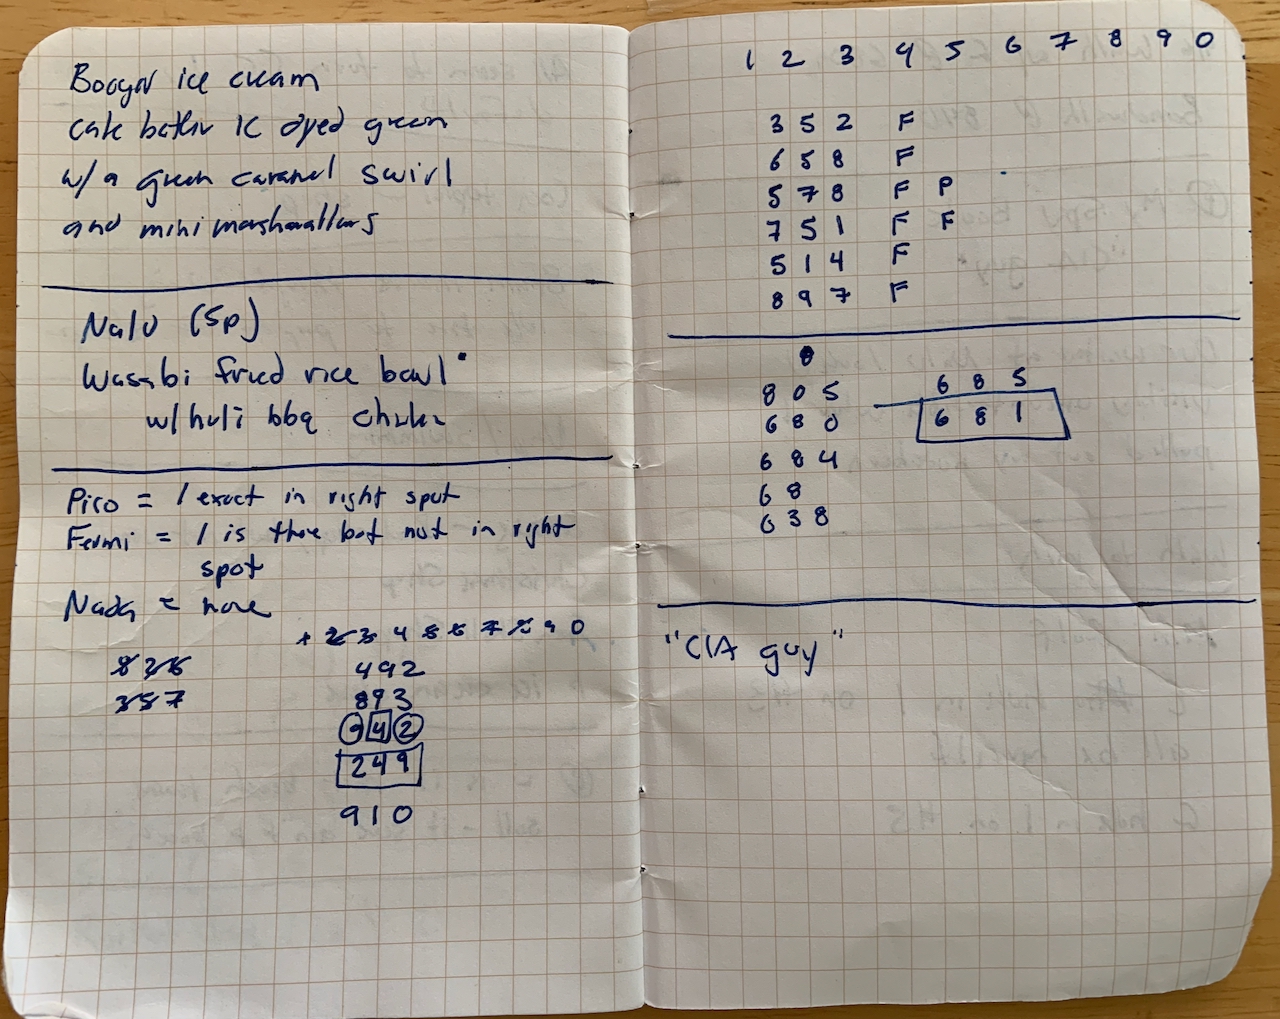 Booger ice cream
cake batter IC dyed green
w/ a green caramel swirl
and mini marshmallows
Nalu (sp)
Wasabi fried rice bowl
w/ huli bbq
Pico = 1 exact in right spot
Fermi = 1 is there but not in right
spot
Nada = none
2 3 4 5 6 7 8 9 0
8 3 6
3 5 7
492
893
9 4 2
249
910
1 2 3 4 5 6 7 8 9 0
3 5 2 F
6 5 8 F
5 7 8 F P
7 5 1 F F
5 1 4 F
8 9 7 F
8
8 0 5
6 8 0
6 8 4
6 8
6 3 8
6 8 5
6 8 1
"CIA guy"